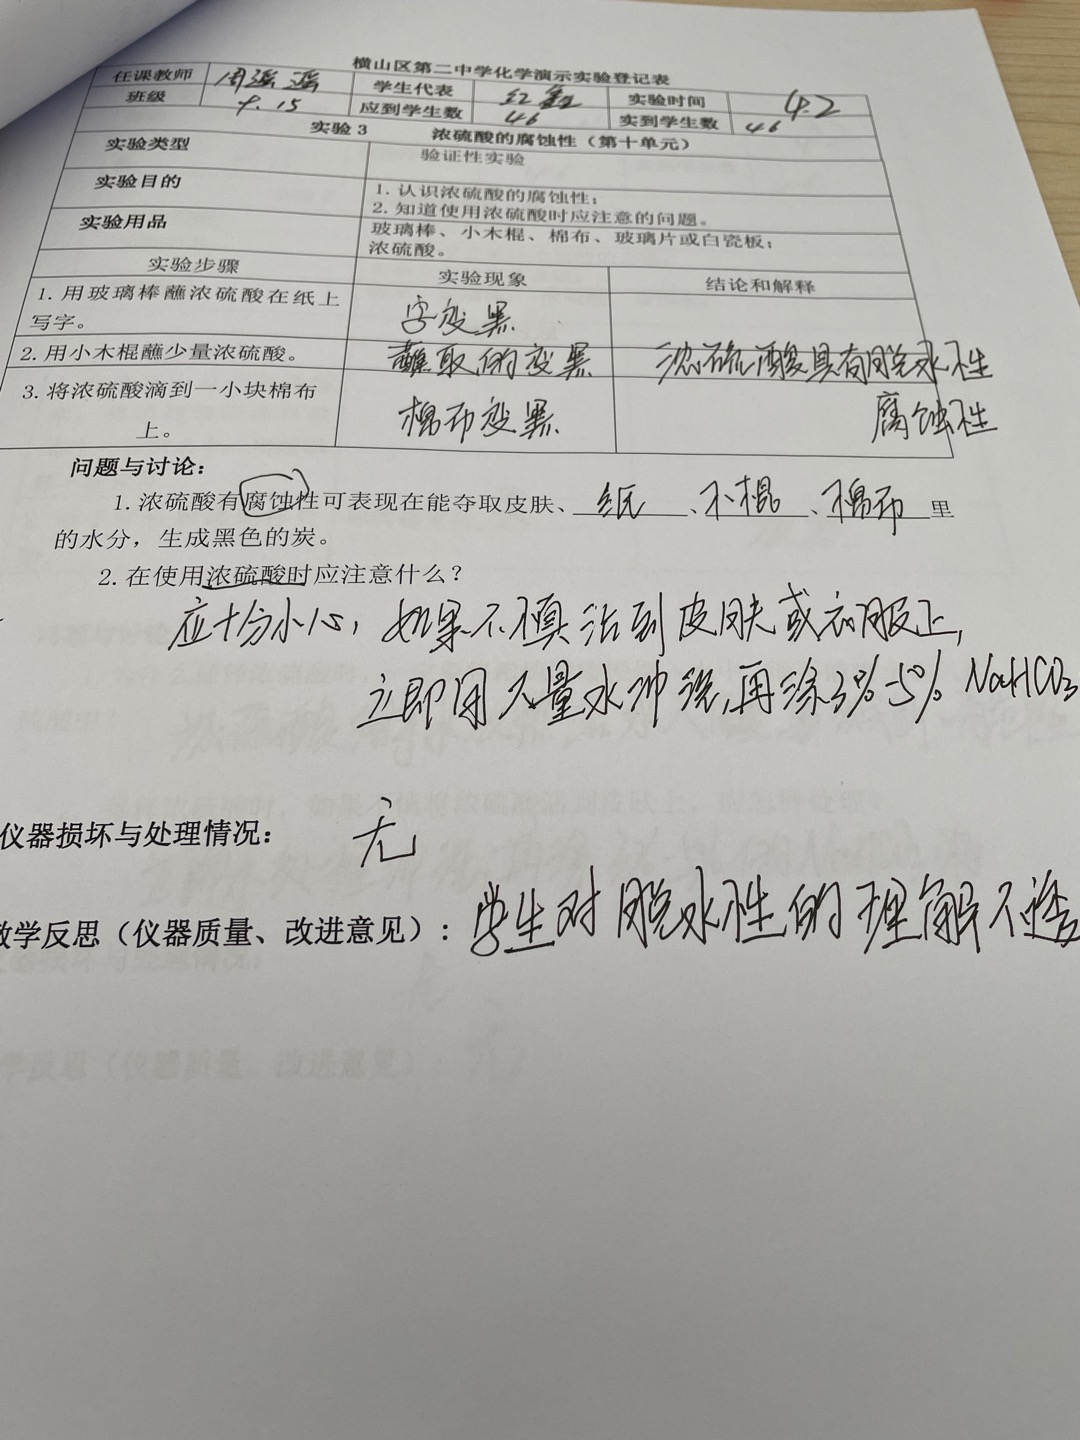 横山区第二中学化学演示实验登记表
任课教师 周瑶瑶 学生代表 实验时间 4.2
班级 9.15 应到学生数 46 实到学生数 46
实验3 浓硫酸的腐蚀性（第十单元）
实验类型 验证性实验
实验目的 1. 认识浓硫酸的腐蚀性；
2. 知道使用浓硫酸时应注意的问题。
实验用品 玻璃棒、小木棍、棉布、玻璃片或白瓷板；
浓硫酸。
实验步骤 实验现象 结论和解释
1. 用玻璃棒蘸浓硫酸在纸上
写字。 字变黑
2. 用小木棍蘸少量浓硫酸。 蘸取的变黑 浓硫酸具有脱水性
3. 将浓硫酸滴到一小块棉布
上。 棉布变黑 腐蚀性
问题与讨论：
1. 浓硫酸有腐蚀性可表现在能夺取皮肤、纸、木棍、棉布里
的水分，生成黑色的炭。
2. 在使用浓硫酸时应注意什么？
应十分小心，如果不慎沾到皮肤或衣服上，
立即用大量水冲洗，再涂3%-5% NaHCO3
仪器损坏与处理情况： 无
教学反思（仪器质量、改进意见）： 学生对脱水性的理解不透